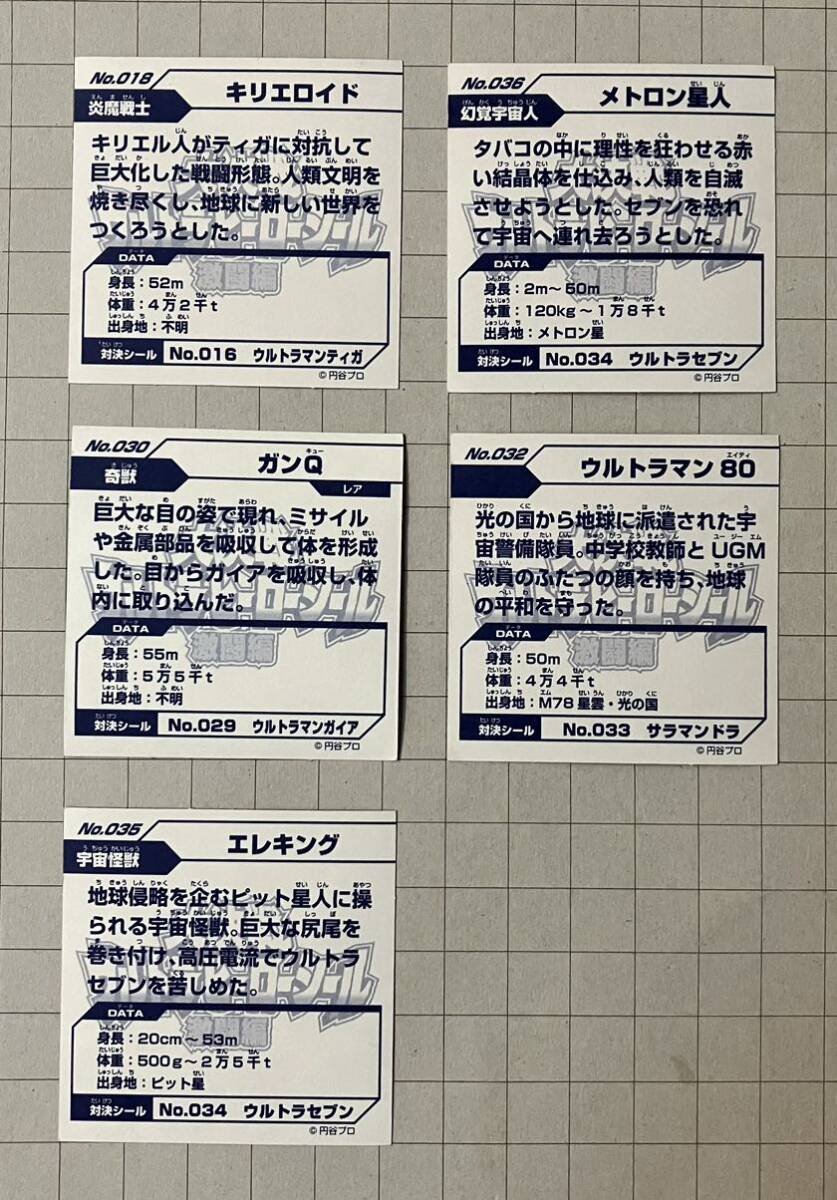 No.018
キリエロイド
炎魔戦士
キリエル人がティガに対抗して
巨大化した戦闘形態。人類文明を
焼き尽くし、地球に新しい世界を
つくろうとした。
DATA
身長：52m
体重：4万2千t
出身地：不明
対決シール No.016 ウルトラマンティガ
©円谷プロ
No.036
メトロン星人
幻覚宇宙人
タバコの中に理性を狂わせる赤
い結晶体を仕込み、人類を自滅
させようとした。セブンを恐れ
て宇宙へ連れ去ろうとした。
DATA
身長：2m〜50m
体重：120kg〜1万8千t
出身地：メトロン星
対決シール No.034 ウルトラセブン
©円谷プロ
No.030
ガンQ
奇獣
レア
巨大な目の姿で現れ、ミサイル
や金属部品を吸収して体を形成
した。目からガイアを吸収し、体
内に取り込んだ。
DATA
身長：55m
体重：5万5千t
出身地：不明
対決シール No.029 ウルトラマンガイア
©円谷プロ
No.032
ウルトラマン80
光の国から地球に派遣された宇
宙警備隊員。中学校教師とUGM
隊員のふたつの顔を持ち、地球
の平和を守った。
DATA
身長：50m
体重：4万4千t
出身地：M78星雲・光の国
対決シール No.033 サラマンドラ
©円谷プロ
No.035
エレキング
宇宙怪獣
地球侵略を企むピット星人に操
られる宇宙怪獣。巨大な尻尾を
巻き付け、高圧電流でウルトラ
セブンを苦しめた。
DATA
身長：20cm〜53m
体重：500g〜2万5千t
出身地：ピット星
対決シール No.034 ウルトラセブン
©円谷プロ